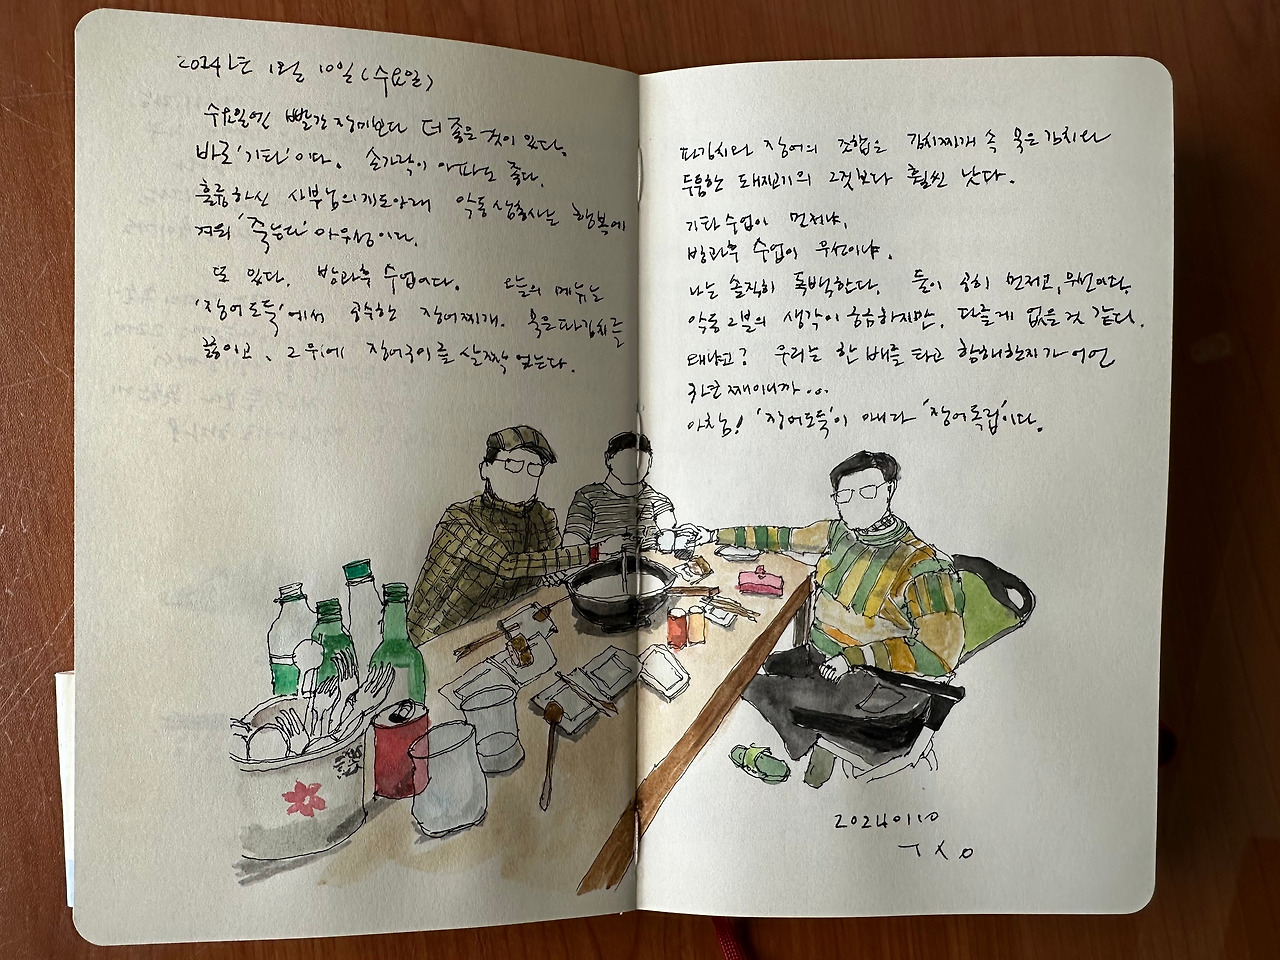 2024년 1월 10일(수요일)
수요일엔 빨간 장미보다 더 좋은 것이 있다.
바로 '기타'이다. 손가락이 아파도 좋다.
훌륭하신 사부님의 지도아래 악동삼총사는 행복에
겨워 '죽는다' 아우성이다.
또 있다. 방과후 수업이다. 오늘의 메뉴는
'장어도둑'에서 공수한 장어찌개. 묵은파김치를
끓이고, 그 위에 장어구이를 살짝 얹는다.
파김치와 장어의 조합은 김치찌개 속 묵은김치와
두툼한 돼지고기의 그것보다 훨씬 낫다.
기타 수업이 먼저냐,
방과후 수업이 우선이냐.
나는 솔직히 독백한다. 둘이 공히 먼저고, 우선이다.
악동 2분의 생각이 궁금하지만, 다를게 없을 것 같다.
왜냐고? 우리는 한 배를 타고 함해한지가 어언
3년째이니까...
아참! '장어도둑'이 아니라 '장어독립'이다.
20240110
ㄱㅅㅇ